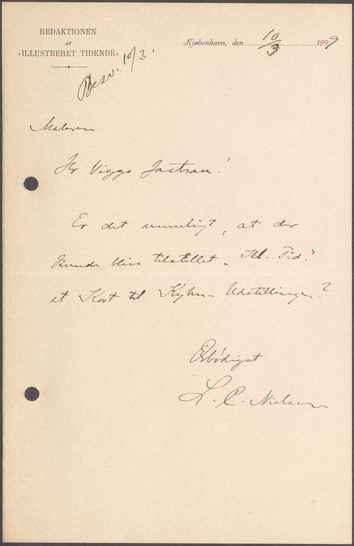 REDAKTIONEN
af
»ILLUSTRERET TIDENDE«
Kjøbenhavn, den 10/3 1909
Besv. 10/3.
Maleren
Hr Viggo Jastrau!
Er det umuligt, at der
kunde blive tilstillet „Ill. Tid."
et Kort til Kyhn-Udstillingen?
Ærbødigst
L. C. Nielsen